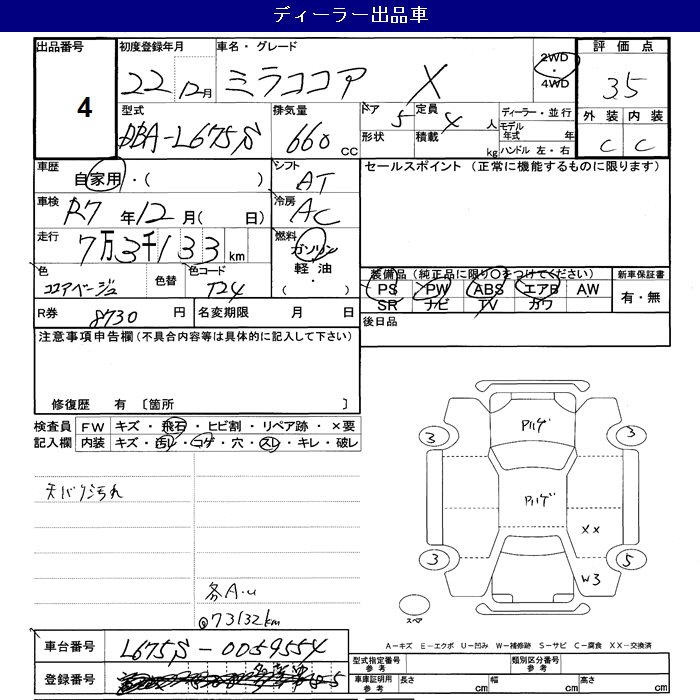 ディーラー出品車
出品番号 4
初度登録年月 22 12月
車名・グレード ミラココア X
2WD・4WD
評価点 3.5
外装 C 内装 C
型式 DBA-L675S
排気量 660 cc
ドア 5 定員 4 人
形状 積載 kg
ディーラー・並行
モデル年式 年
ハンドル 左・右
車歴 自家用・( )
シフト AT
セールスポイント (正常に機能するものに限ります)
車検 R7 年 12 月( 日)
冷房 AC
走行 7万3千133 km
燃料 ガソリン 軽油・( )
色 ココアベージュ 色替 色コード T24
装備品 (純正品に限り○をつけてください)
PS PW ABS エアB AW
SR ナビ TV カワ
新車保証書 有・無
R券 8730 円 名変期限 月 日
後日品
注意事項申告欄(不具合内容等は具体的に記入して下さい)
修復歴 有 〔箇所 〕
検査員記入欄 FW キズ・飛石・ヒビ割・リペア跡・×要
内装 キズ・汚れ・コゲ・穴・スレ・キレ・破レ
天バリ汚れ
各A・U
@73132km
Aハゲ
Aハゲ
3 3
XX
W3
3 5
スペア
A-キズ E-エクボ U-凹み W-補修跡 S-サビ C-腐食 XX-交換済
車台番号 L675S-0059554
登録番号
型式指定番号 参考 類別区分番号 参考
車庫証明用 参考 長さ cm 幅 cm 高さ cm